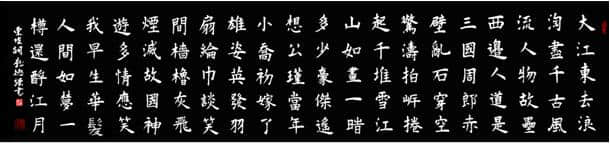 大江東去浪
淘盡千古風
流人物故壘
西邊人道是
三國周郎赤
壁亂石穿空
驚濤拍岸捲
起千堆雪江
山如畫一時
多少豪傑遙
想公瑾當年
小喬初嫁了
雄姿英發羽
扇綸巾談笑
間檣櫓灰飛
煙滅故國神
遊多情應笑
我早生華髮
人間如夢一
樽還酹江月
東坡詞